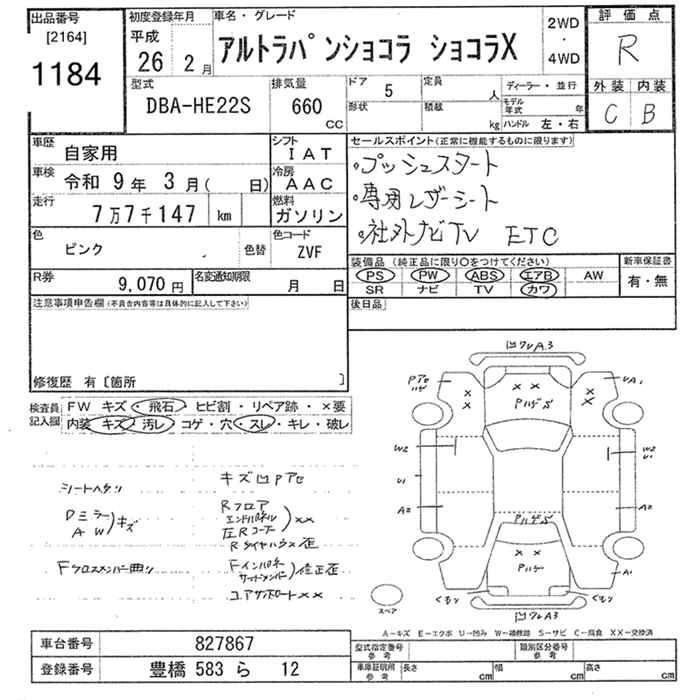 出品番号
[2164]
1184
初度登録年月
平成
26 2月
車名・グレード
アルトラパンショコラ ショコラX
2WD
・
4WD
評価点
R
外装 内装
C B
型式
DBA-HE22S
排気量
660
CC
ドア 5
形状
定員 人
積載 kg
ディーラー・並行
モデル年式 年
ハンドル 左・右
車歴 自家用
車検 令和 9年 3月( 日)
走行 7万7千147 km
シフト IAT
冷房 AAC
燃料 ガソリン
色 ピンク 色替
色コード ZVF
R券 9,070円
名変通知期限 月 日
セールスポイント(正常に機能するものに限ります)
・プッシュスタート
・専用レザーシート
・社外ナビTV ETC
装備品(純正品に限り○をつけてください)
PS PW ABS エアB AW
SR ナビ TV カワ
新車保証書
有・無
後日品
注意事項申告欄(不具合内容等は具体的に記入して下さい)
修復歴 有〔箇所 〕
検査員記入欄
FW キズ・飛石・ヒビ割・リペア跡・×要
内装 キズ・汚レ・コゲ・穴・スレ・キレ・破レ
キズ凹Pアセ
シートヘタリ
Dミラー
AW)キズ
Rフロア
エンドパネル
左Rコーナー)××
Rタイヤハウス歪
Fクロスメンバー曲り
Fインパネ
サイドメンバー)修正歪
コアサポート××
凹ワレA3
Pアセ
ハゲ
UA1
× × × × × ×
PハゲS
W2
W2
U1
U1
A2
A2
PハゲS
× ×
Pハゲ
A1
くもり
くもり
凹ワレA3
スペア
A-キズ E-エクボ U-凹み W-補修跡 S-サビ C-腐食 XX-交換済
車台番号 827867
登録番号 豊橋 583 ら 12
型式指定番号 参考
類別区分番号 参考
車庫証明用 参考
長さ cm
幅 cm
高さ cm